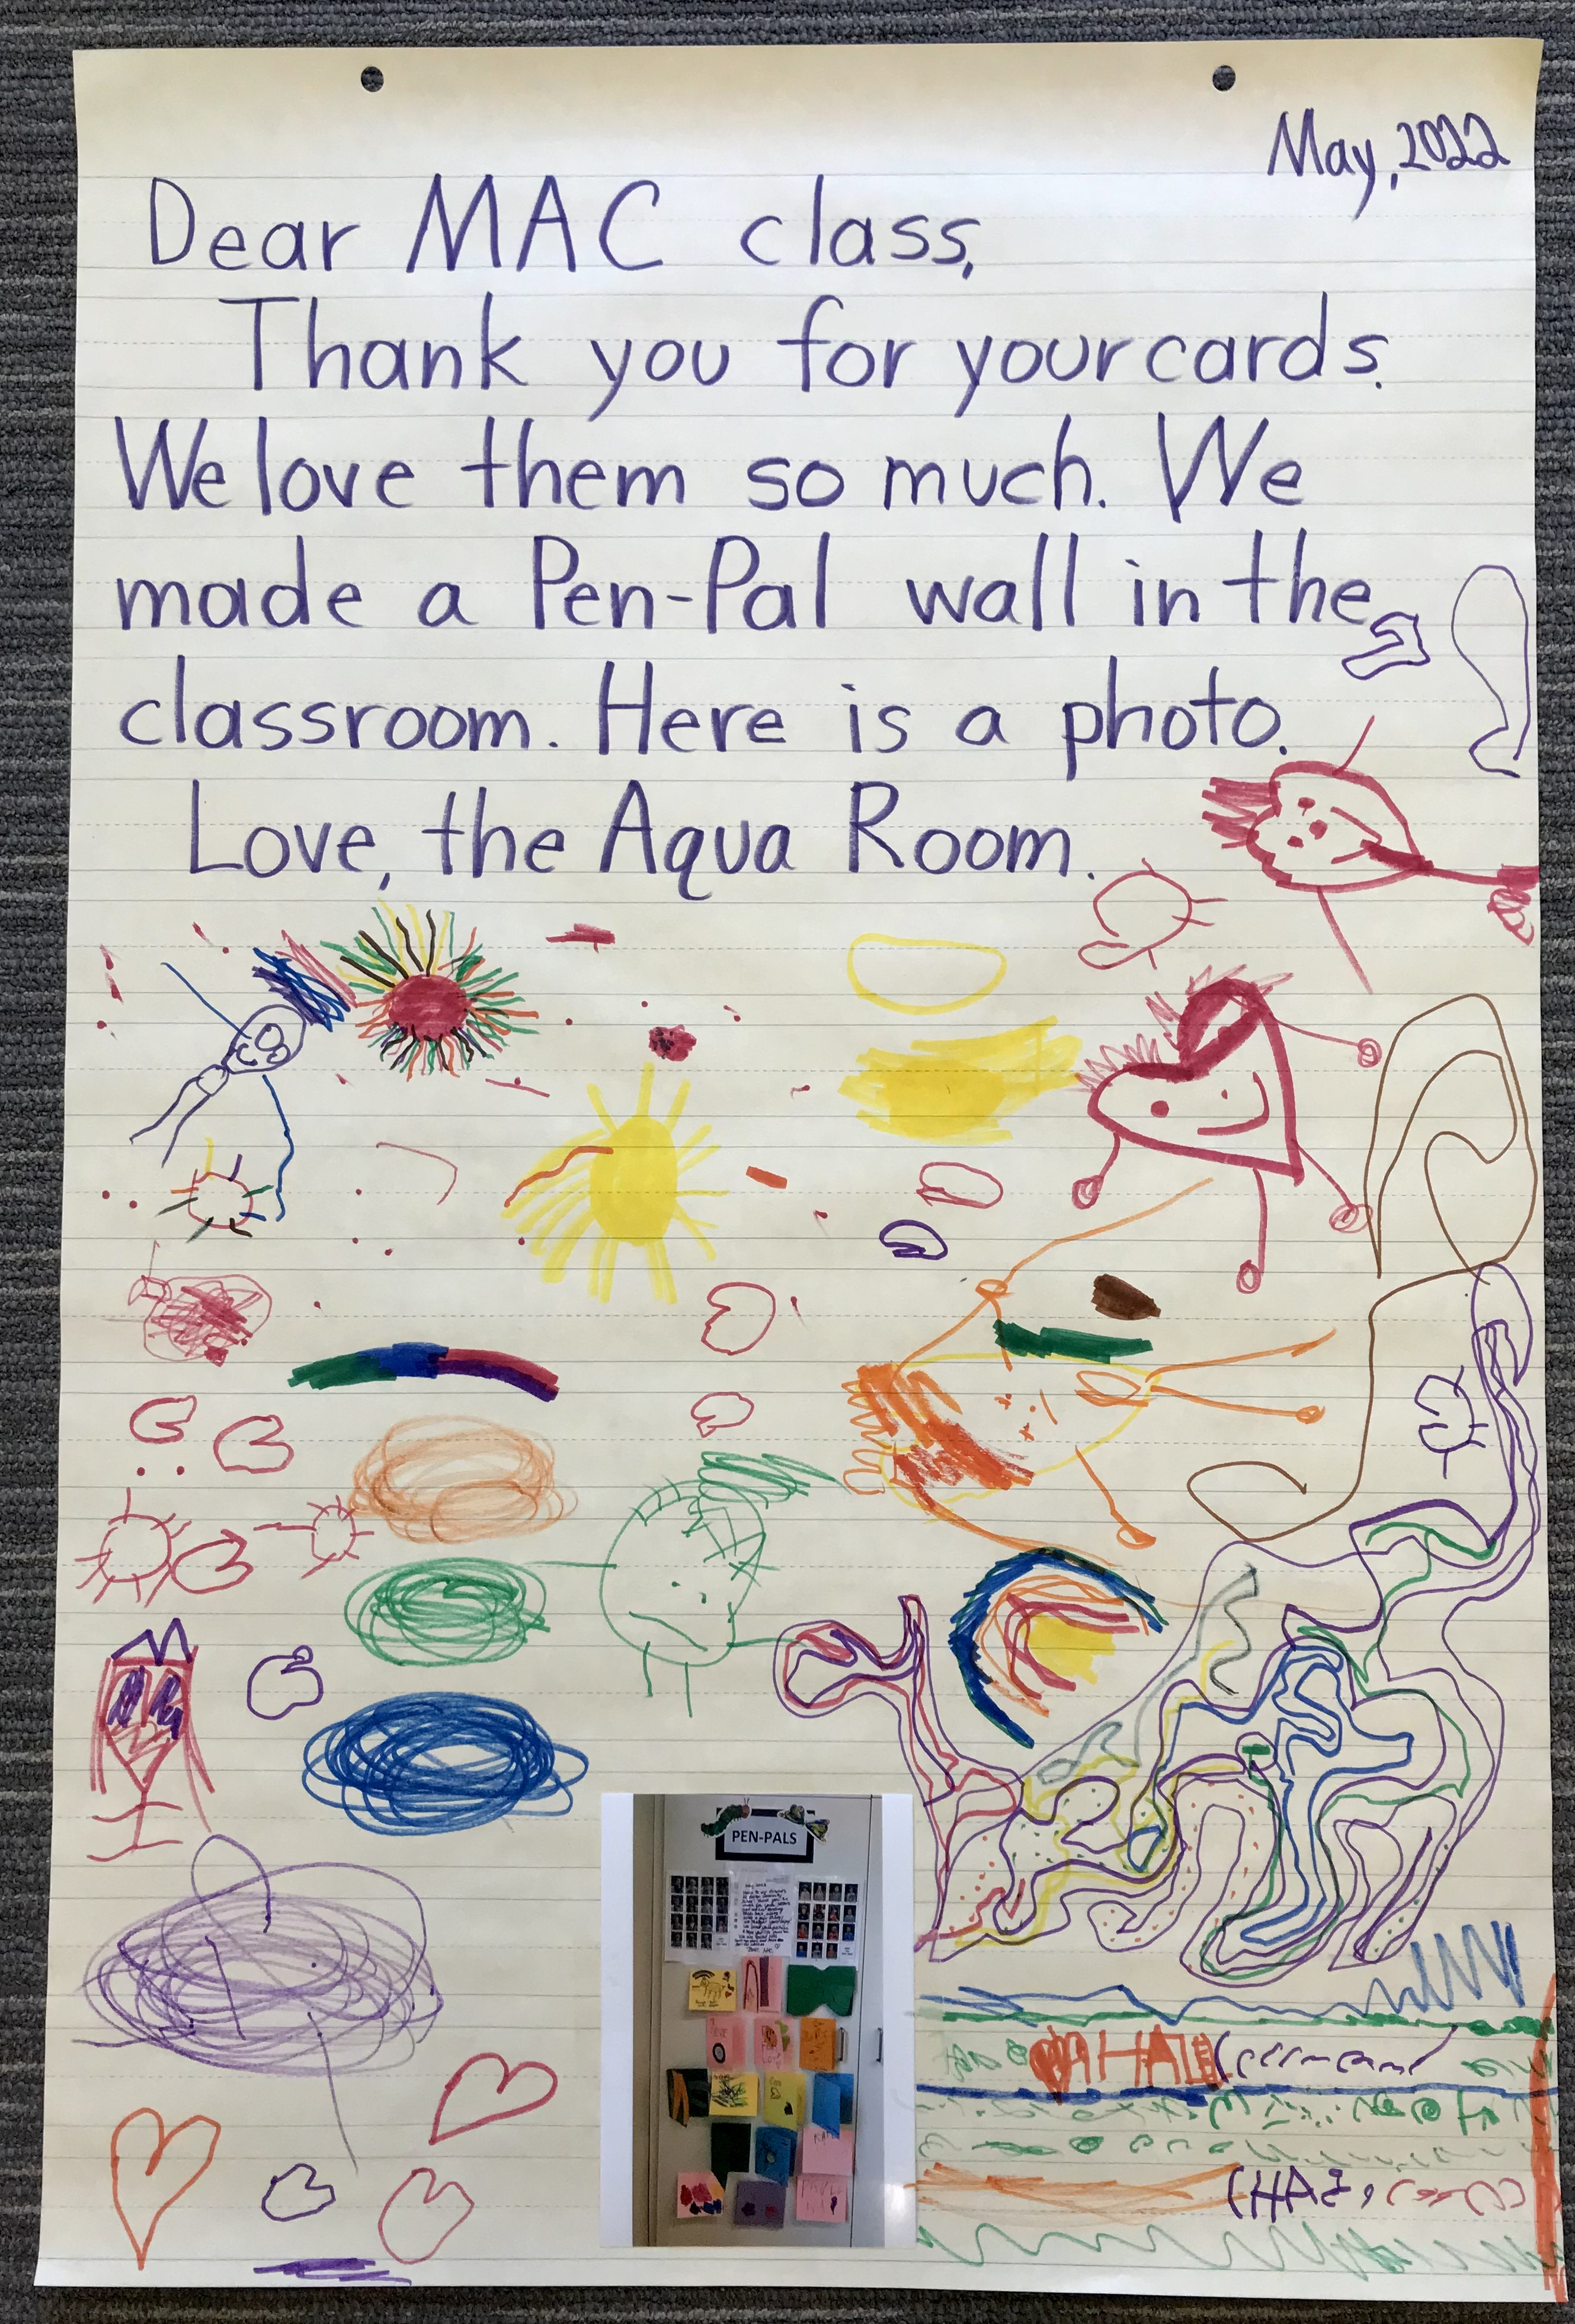 May, 2022
Dear MAC class,
Thank you for your cards.
We love them so much. We
made a Pen-Pal wall in the
classroom. Here is a photo.
Love, the Aqua Room.
PEN-PALS